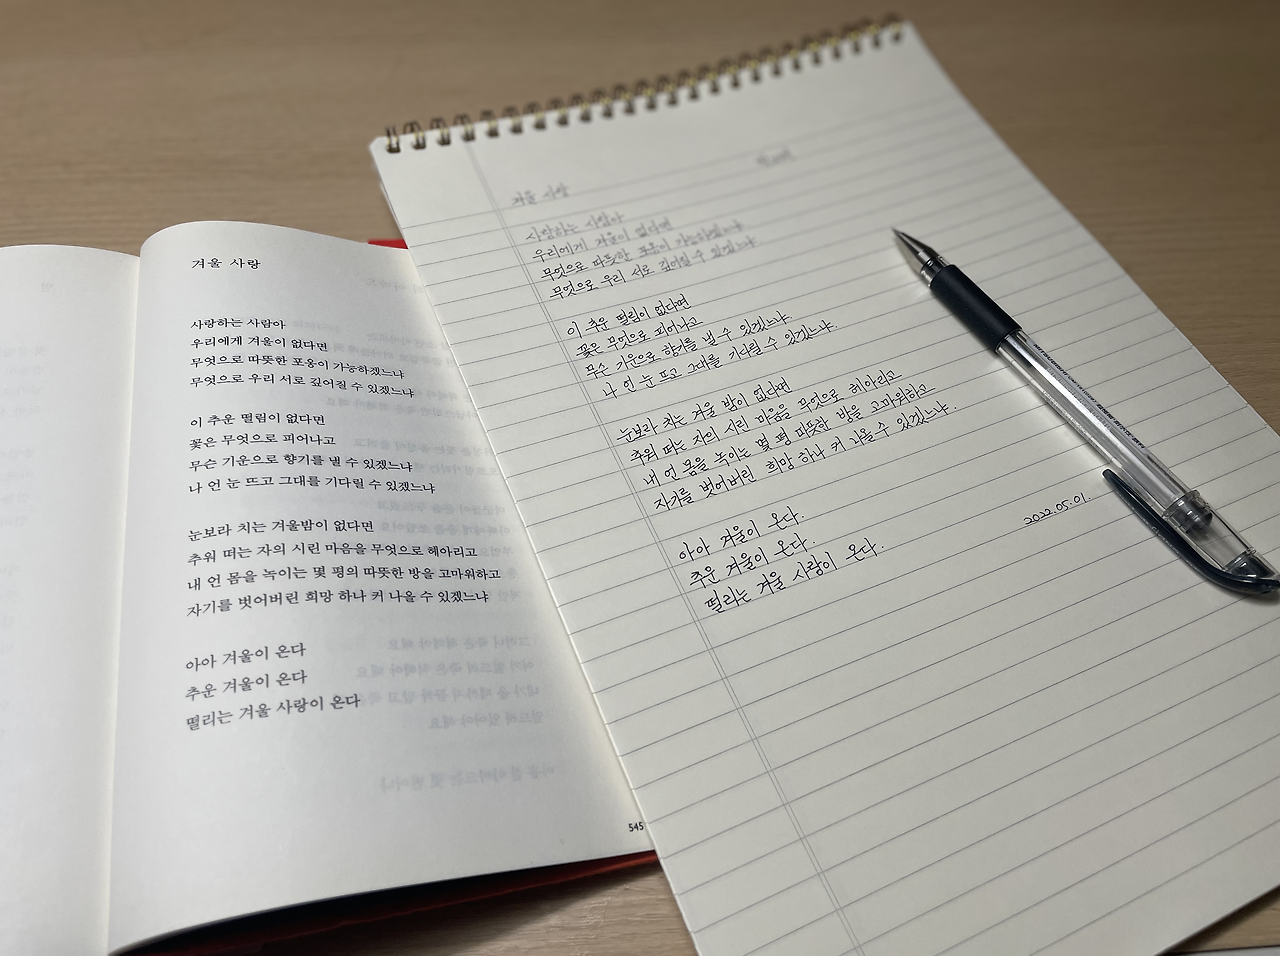 겨울 사랑
사랑하는 사람아
우리에게 겨울이 없다면
무엇으로 따뜻한 포옹이 가능하겠느냐
무엇으로 우리 서로 깊어질 수 있겠느냐
이 추운 떨림이 없다면
꽃은 무엇으로 피어나고
무슨 기운으로 향기를 낼 수 있겠느냐
나 언 눈 뜨고 그대를 기다릴 수 있겠느냐
눈보라 치는 겨울밤이 없다면
추워 떠는 자의 시린 마음을 무엇으로 헤아리고
내 언 몸을 녹이는 몇 평의 따뜻한 방을 고마워하고
자기를 벗어버린 희망 하나 커 나올 수 있겠느냐
아아 겨울이 온다
추운 겨울이 온다
떨리는 겨울 사랑이 온다
545
겨울 사랑
사랑하는 사람아
우리에게 겨울이 없다면
무엇으로 따뜻한 포옹이 가능하겠느냐
무엇으로 우리 서로 깊어질 수 있겠느냐
이 추운 떨림이 없다면
꽃은 무엇으로 피어나고
무슨 기운으로 향기를 낼 수 있겠느냐.
나 언 눈 뜨고 그대를 기다릴 수 있겠느냐.
눈보라 치는 겨울 밤이 없다면
추워 떠는 자의 시린 마음을 무엇으로 헤아리고
내 언 몸을 녹이는 몇 평 따뜻한 방을 고마워하고
자기를 벗어버린 희망 하나 커 나올 수 있겠느냐.
2022.05.01.
아아 겨울이 온다.
추운 겨울이 온다.
떨리는 겨울 사랑이 온다.